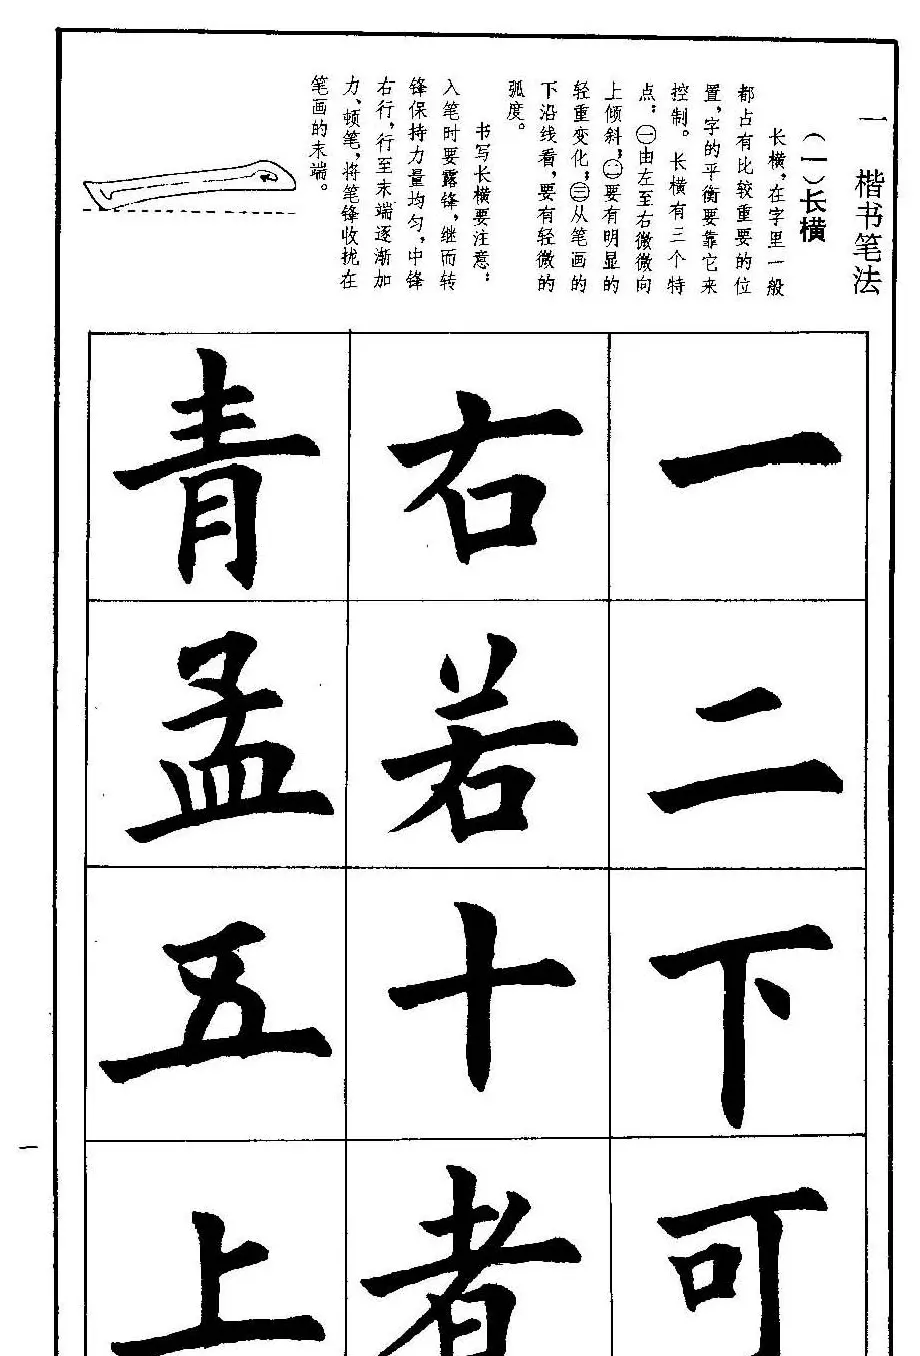 一 楷书笔法
(一)长横
长横,在字里一般
都占有比较重要的位
置,字的平衡要靠它来
控制。长横有三个特
点:㊀由左至右微微向
上倾斜;㊁要有明显的
轻重变化;㊂从笔画的
下沿线看,要有轻微的
弧度。
书写长横要注意:
入笔时要露锋,继而转
锋保持力量均匀,中锋
右行,行至末端逐渐加
力、顿笔,将笔锋收拢在
笔画的末端。
一二下可
右若十者
青孟五上
一